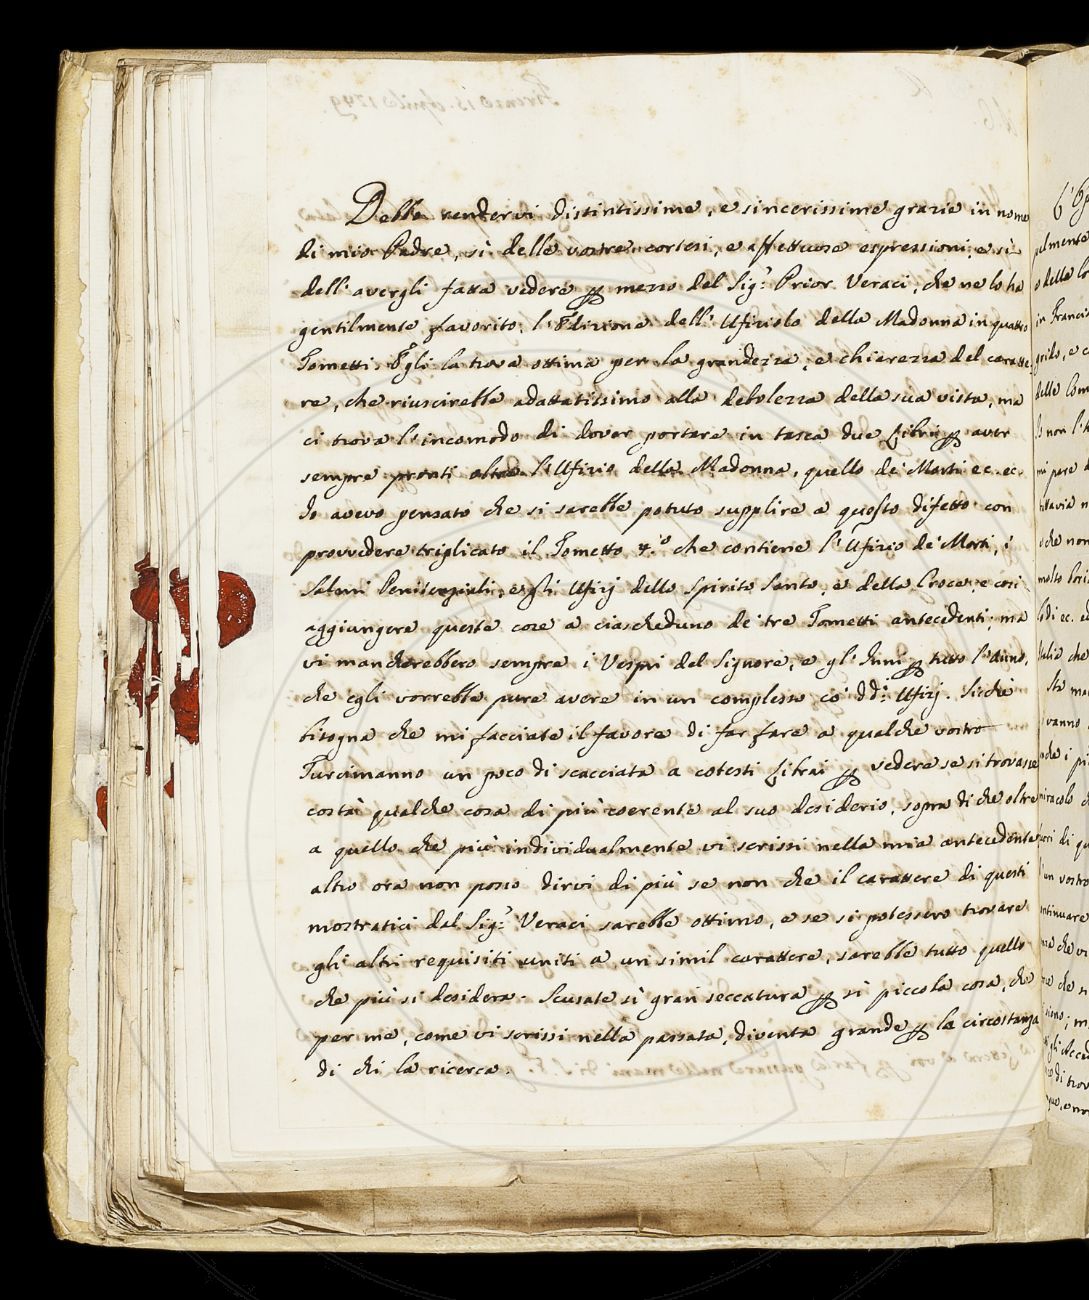 Debbo rendervi distintissime, e sincerissime grazie in nome
di mio Padre, sì delle vostre cortesi, e affettuose espressioni, e sì
dell'avergli fatta vedere per mezzo del Sig.r Prior Veraci, che ne lo ha
gentilmente favorito, l'Edizione dell'Ufiziolo della Madonna in quattro
Tometti. Egli la trova ottima per la grandezza, e chiarezza del caratte-
re, che riuscirebbe adattatissimo alla debolezza della sua vista, ma
ci trova l'incomodo di dover portare in tasca due Libri per aver
sempre pronti oltre l'Ufizio della Madonna, quello de' Morti ec. ec.
Io avevo pensato che si sarebbe potuto supplire a questo difetto con
provvedere triplicato il Tometto 4.o che contiene l'Ufizio de' Morti, i
Salmi Penitenziali, e gli Ufizj dello Spirito Santo, e della Croce, e così
aggiungere queste cose a ciascheduno de' tre Tometti antecedenti; ma
vi mancherebbero sempre i Vespri del Signore, e gl'Inni per tutto l'Anno,
che egli vorrebbe pure avere in un complesso co' dd.i Ufizj. Sicchè
bisogna che mi facciate il favore di far fare a qualche vostro
Turcimanno un poco di scacciata a cotesti Librai per vedere se si trovasse
costà qualche cosa di più coerente al suo desiderio, sopra di che oltre
a quello che più individualmente vi scrissi nella mia antecedente
altro ora non posso dirvi di più se non che il carattere di questi
mostratici dal Sig.r Veraci sarebbe ottimo, e se si potessero trovare
gli altri requisiti uniti a un simil carattere, sarebbe tutto quello
che più si desidera. Scusate sì gran seccatura per sì piccola cosa, che
per me, come vi scrissi nella passata, diventa grande per la circostanza
di chi la ricerca.